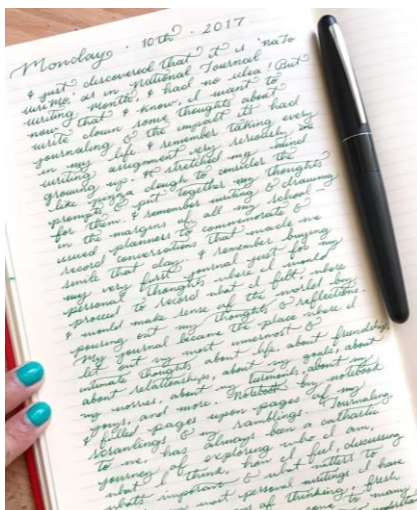 Monday · 10th · 2017
I just discovered that it is "NaJo
WriMo," as in National Journal
Writing Month, & had no idea! But
now that I know, I want to
write down some thoughts about
journaling & the impact it's had
in my life. I remember taking every
writing assignment very seriously
growing up. It stretched my mind
like pizza dough to consider the
prompts & put together my thoughts
for them. I remember writing & drawing
in the margins of all my school
issued planners to commemorate &
record conversations that made me
smile that day. I remember buying
my very first journal just for my
personal thoughts where I would
proceed to record what I felt, where
I would make sense of the world by
pouring out my thoughts & reflections.
My journal became the place where I
let out my most innermost &
intimate thoughts, about life, about friendship,
about relationships, about my goals, about
my worries, about my turmoils, about my
joys, and more. Notebook by notebook
I filled pages upon pages of my
scrawlings & my ramblings. Journaling
to me, has always been a cathartic
journey of exploring who I am,
what I think, how I feel, discussing
what's important & what matters to
most personal writings I have
of thinking, fresh
come to many